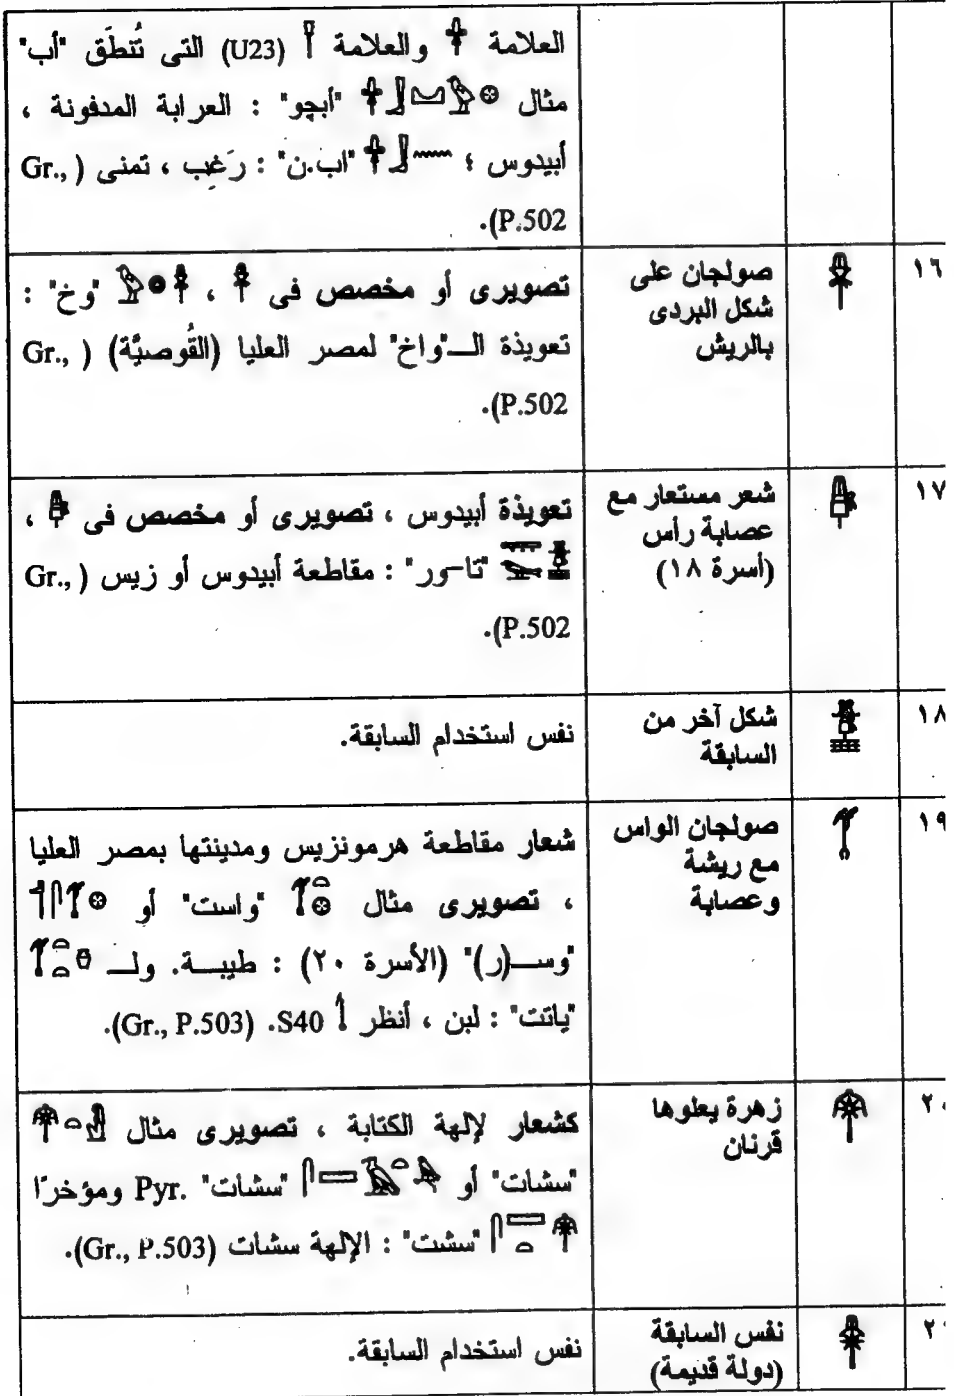 العلامة 𓋊 والعلامة 𓍋 (U23) التى تُنطَق "أب"
مثال "أبچو" : العرابة المدفونة ،
أبيدوس ؛ "اب.ن" : رَغِب ، تمنى (Gr.,
P.502).
١٦
صولجان على
شكل البردى
بالريش
تصويرى أو مخصص فى ، "وخ" :
تعويذة الـ"واخ" لمصر العليا (القُوصيَّة) (Gr.,
P.502).
١٧
شعر مستعار مع
عصابة رأس
(أسرة ١٨)
تعويذة أبيدوس ، تصويرى أو مخصص فى ،
"تا-ور" : مقاطعة أبيدوس أو زيس (Gr.,
P.502).
١٨
شكل آخر من
السابقة
نفس استخدام السابقة.
١٩
صولجان الواس
مع ريشة
وعصابة
شعار مقاطعة هرمونزيس ومدينتها بمصر العليا
، تصويرى مثال "واست" أو
"وســ(ر)" (الأسرة ٢٠) : طيبــة. ولــ
"ياتت" : لبن ، أنظر S40. (Gr., P.503).
زهرة يعلوها
قرنان
كشعار لإلهة الكتابة ، تصويرى مثال
"سشات" أو "سشات" Pyr. ومؤخرًا
"سشت" : الإلهة سشات (Gr., P.503).
نفس السابقة
(دولة قديمة)
نفس استخدام السابقة.